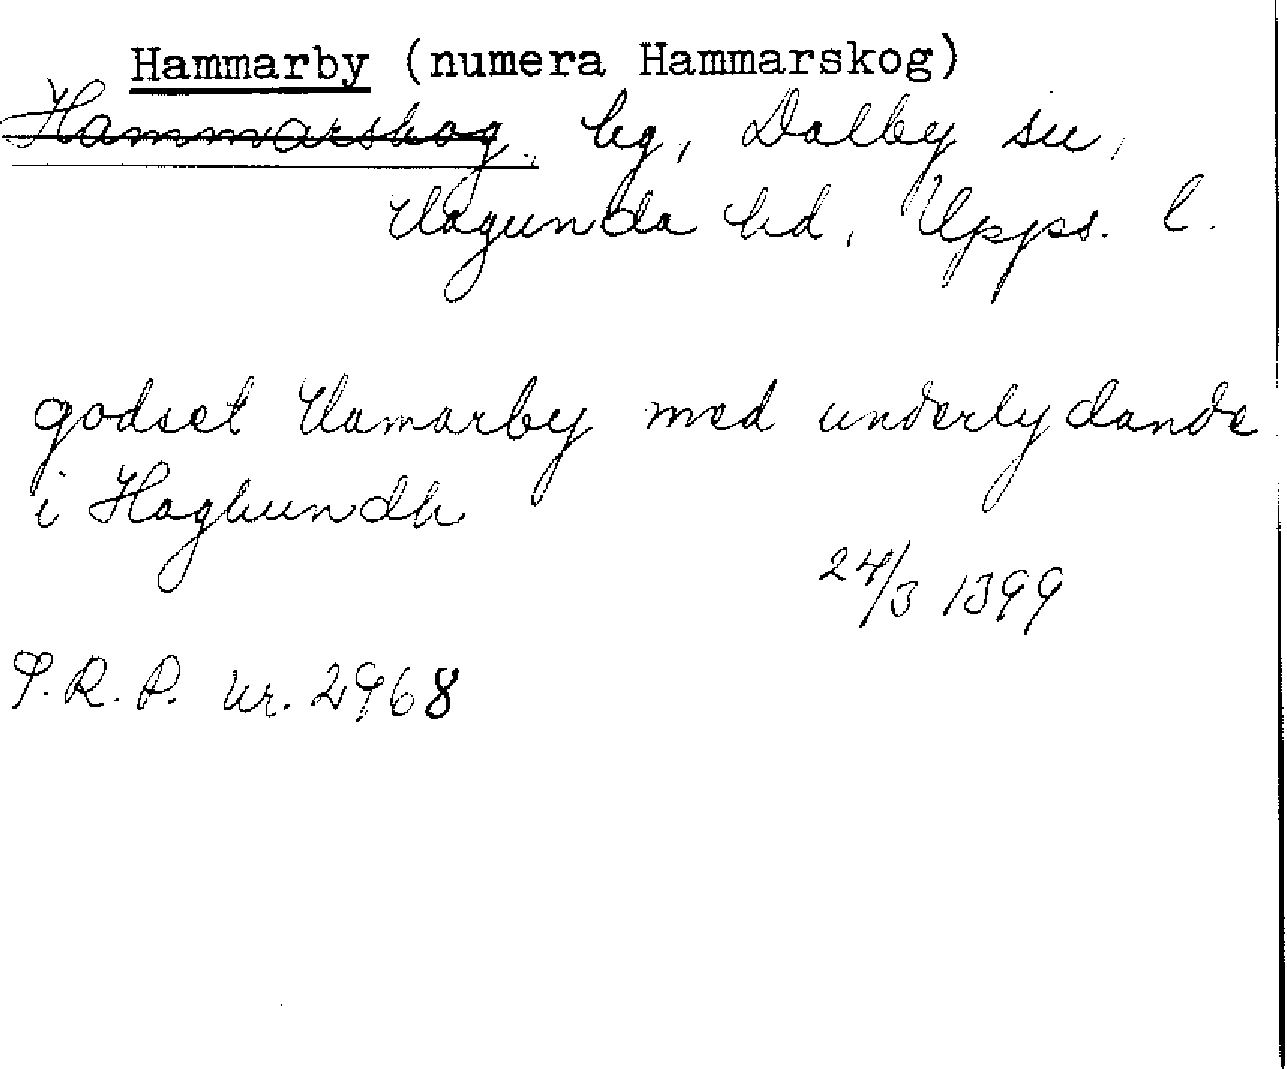 Hammarby (numera Hammarskog)
Hammarskog, hg, Dalby sn,
Hagunda hd, Upps. l.
godset Hamarby med underlydande
i Haghundh
24/3 1399
S.R.P. nr. 2968